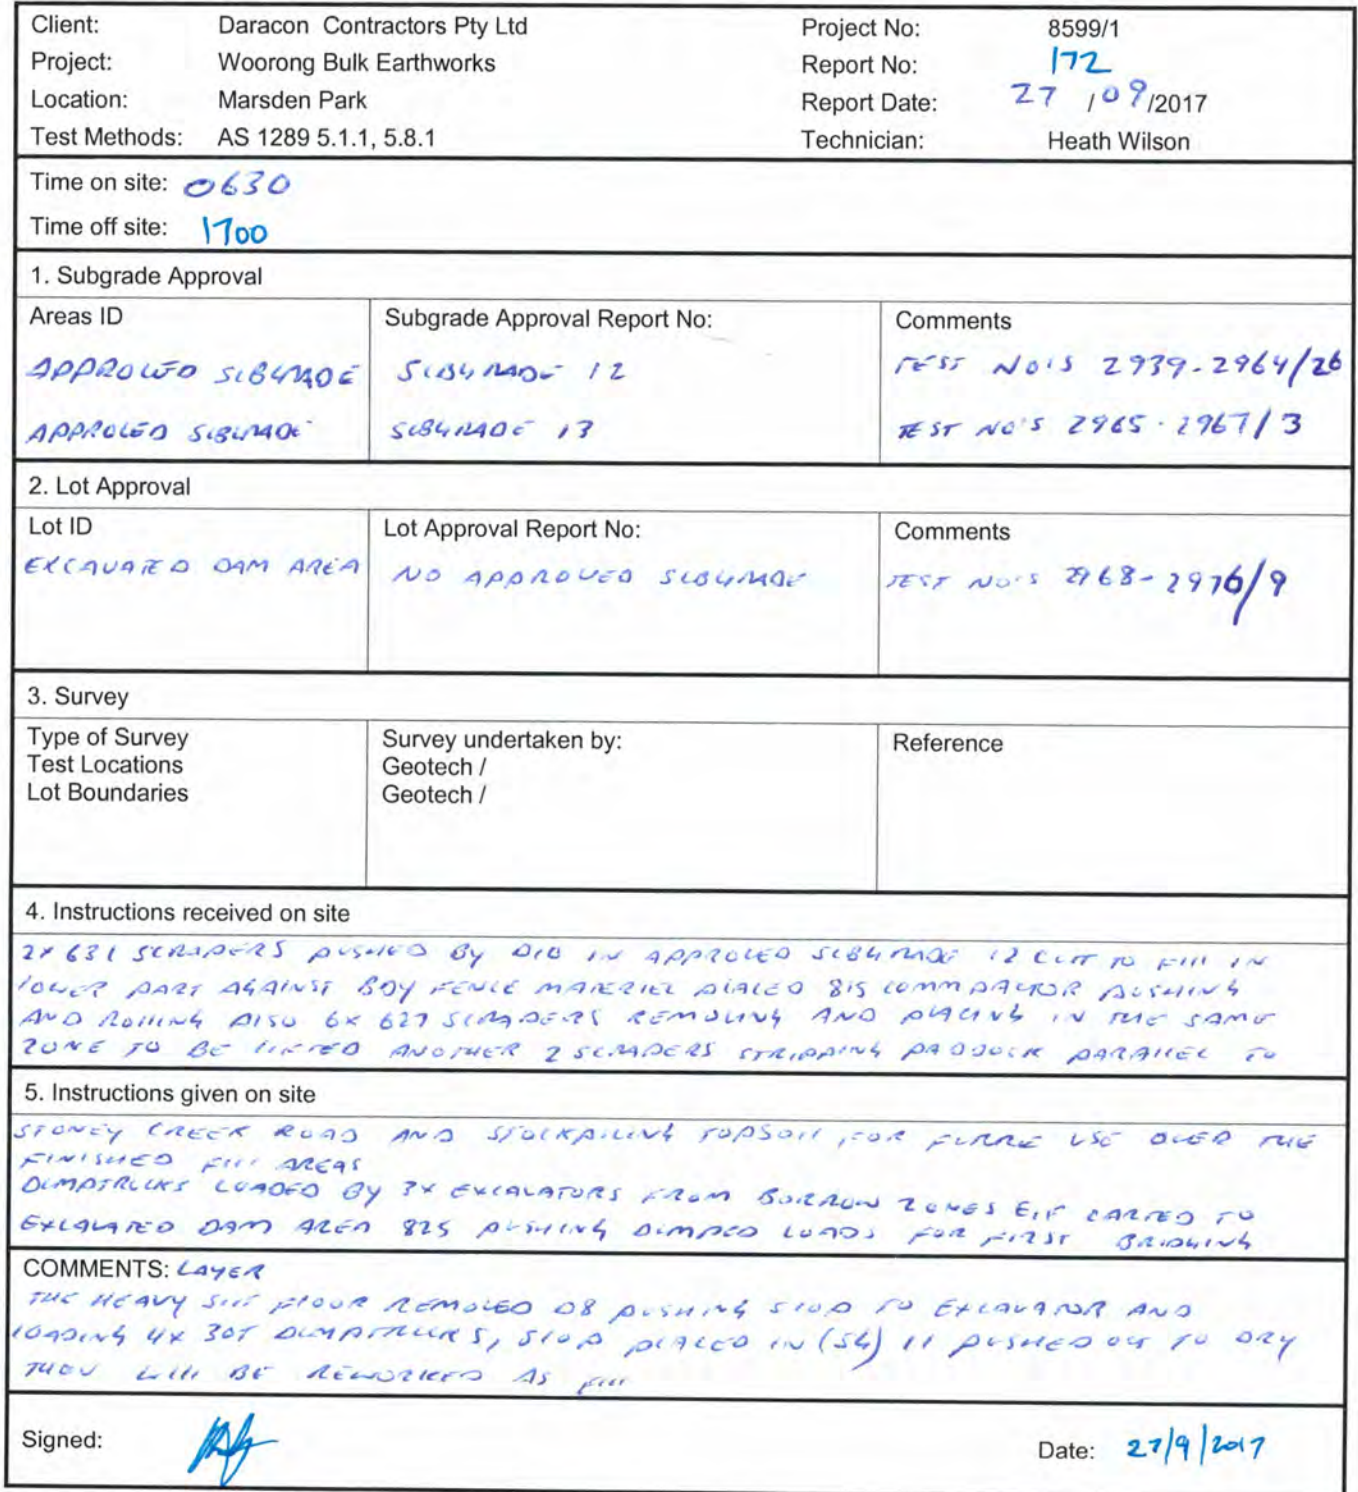 Client: Daracon Contractors Pty Ltd Project No: 8599/1
Project: Woorong Bulk Earthworks Report No: 172
Location: Marsden Park Report Date: 27 / 09/2017
Test Methods: AS 1289 5.1.1, 5.8.1 Technician: Heath Wilson
Time on site: 0630
Time off site: 1700
1. Subgrade Approval
Areas ID Subgrade Approval Report No: Comments
APPROVED SUBGRADE SUBGRADE 12 TEST NO'S 2939-2964/26
APPROVED SUBGRADE SUBGRADE 13 TEST NO'S 2965-2967/3
2. Lot Approval
Lot ID Lot Approval Report No: Comments
EXCAVATED DAM AREA NO APPROVED SUBGRADE TEST NO'S 2968-2976/9
3. Survey
Type of Survey Survey undertaken by: Reference
Test Locations Geotech /
Lot Boundaries Geotech /
4. Instructions received on site
2x 631 SCRAPERS PUSHED BY D10 IN APPROVED SUBGRADE 12 CUT TO FILL IN
LOWER PART AGAINST BDY FENCE MATERIEL PLACED 815 COMMPACTOR PUSHING
AND ROLLING ALSO 6x 627 SCRAPERS REMOVING AND PLACING IN THE SAME
ZONE TO BE LIFTED ANOTHER 2 SCRAPERS STRIPPING PADDOCK PARALLEL TO
5. Instructions given on site
STONEY CREEK ROAD AND STOCKPILING TOPSOIL FOR FUTURE USE OVER THE
FINISHED FILL AREAS
DUMPTRUCKS LOADED BY 3x EXCAVATORS FROM BORROW ZONES E,F CARTED TO
EXCAVATED DAM AREA 825 PUSHING DUMPED LOADS FOR FIRST BRIDGING
COMMENTS: LAYER
THE HEAVY SILT FLOOR REMOVED D8 PUSHING SLOP TO EXCAVATOR AND
LOADING 4x 30T DUMPTRUCKS, SLOP PLACED IN (SG) 11 PUSHED OUT TO DRY
THEN WILL BE REWORKED AS FILL
Signed:
Date: 27/9/2017